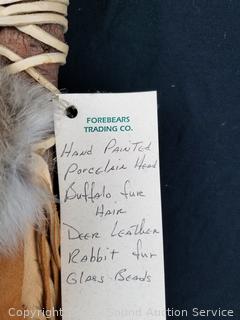 FOREBEARS
TRADING CO.
Hand Painted
Porcelain Head
Buffalo fur
Hair
Deer Leather
Rabbit fur
Glass Beads
Sound Auction Service